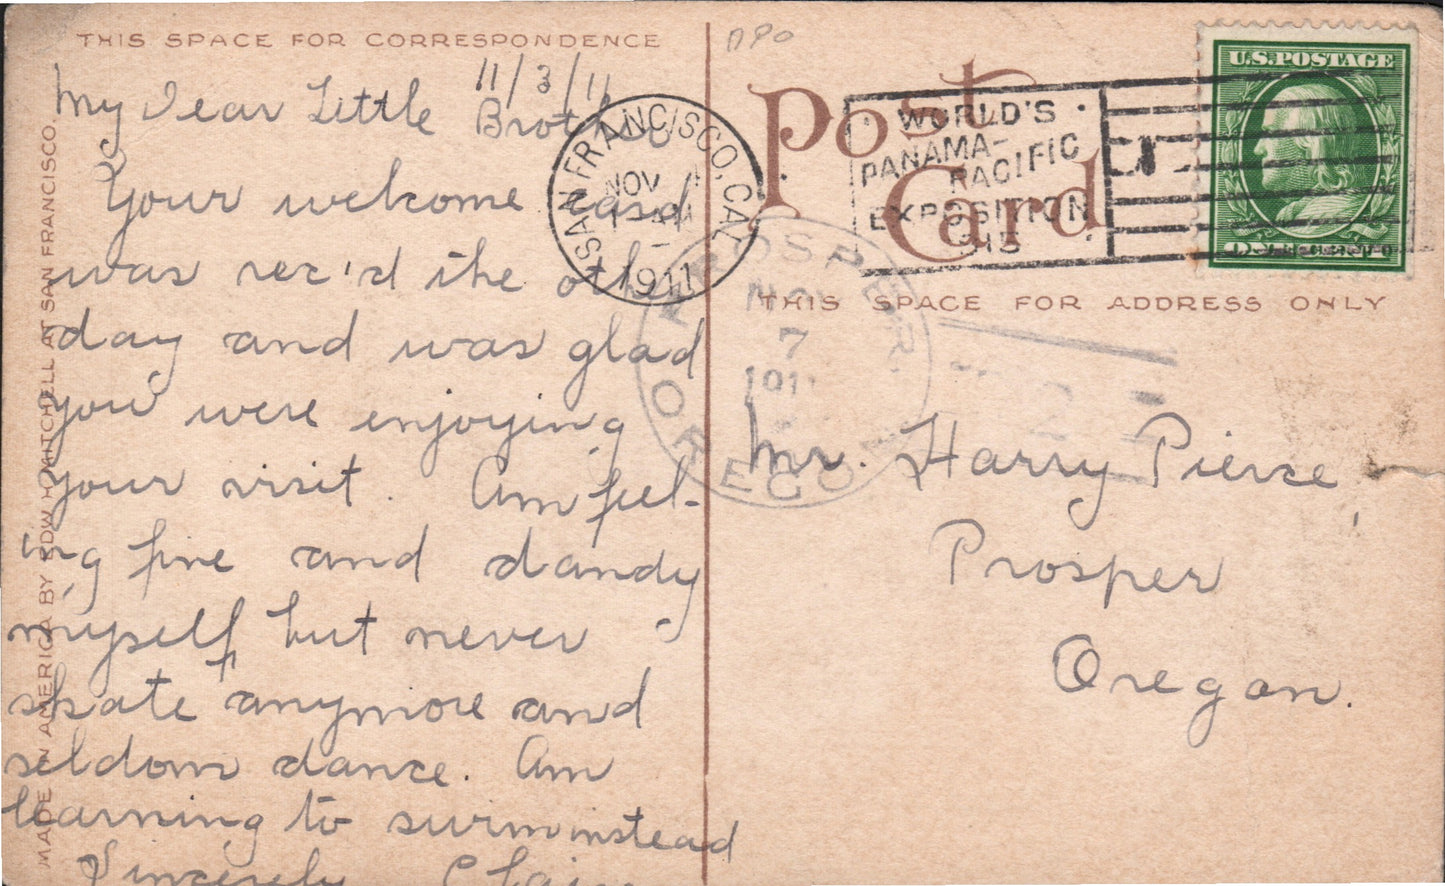 THIS SPACE FOR CORRESPONDENCE
11/3/11
My Dear Little Brother
Your welcome card
was rec'd the other
day and was glad
you were enjoying
your visit. Am feel-
ing fine and dandy
myself but never
skate anymore and
seldom dance. Am
learning to swim instead
Sincerely
MADE IN AMERICA BY EDW. H. MITCHELL AT SAN FRANCISCO.
SAN FRANCISCO, CAL.
NOV
1911
APO
Post
Card
WORLD'S
PANAMA-
PACIFIC
EXPOSITION
U.S. POSTAGE
THIS SPACE FOR ADDRESS ONLY
PROSPER
NOV
7
191
OREGON
Mr. Harry Pierce,
Prosper
Oregon.